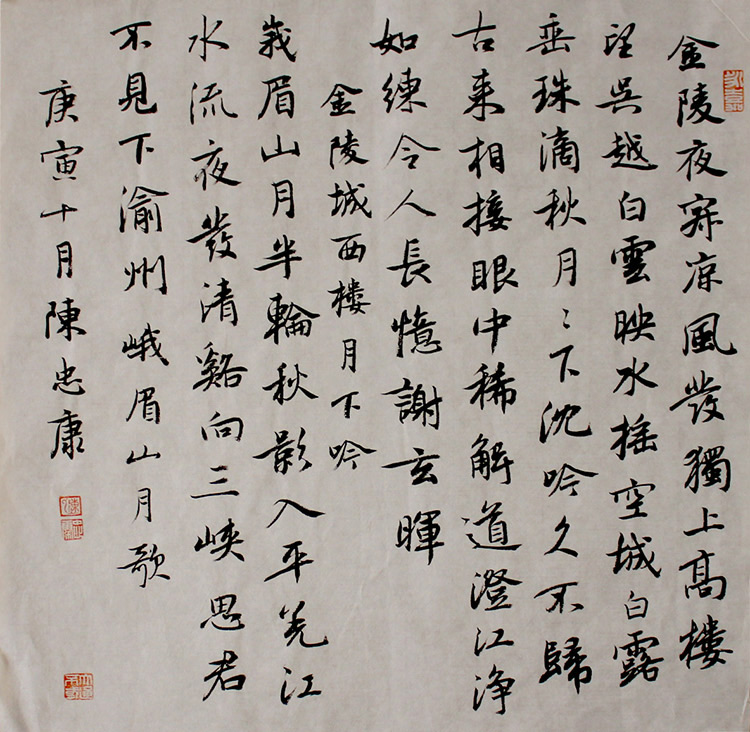 金陵夜寂凉風發獨上高樓
望吳越白雲映水摇空城白露
垂珠滴秋月〻下沈吟久不歸
古来相接眼中稀解道澄江净
如練令人長憶謝玄暉
金陵城西樓月下吟
峩眉山月半輪秋影入平羌江
水流夜發清谿向三峽思君
不見下渝州峨眉山月歌
庚寅十月陳忠康